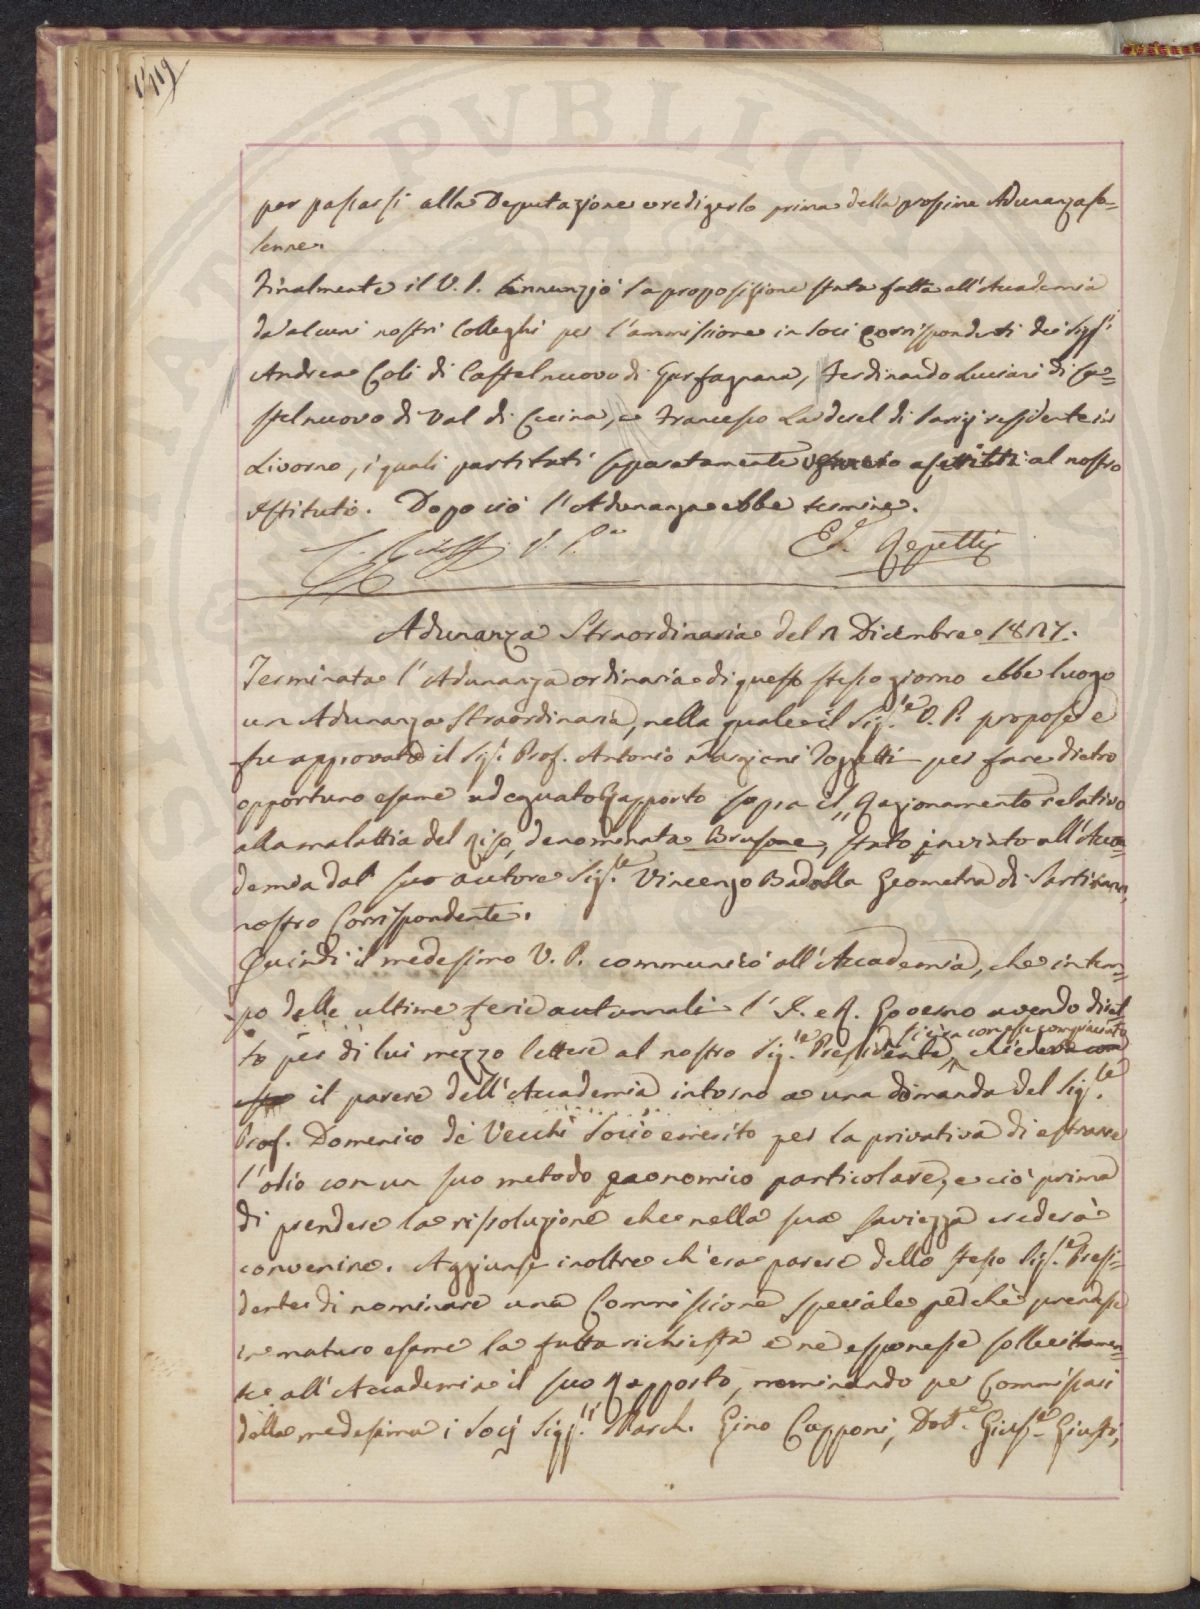 119
per passarsi alla Deputazione e redigerlo prima della prossima Adunanza so=
lenne.
Finalmente il V. P. annunziò la proposizione stata fatta all'Accademia
da alcuni nostri Colleghi per l'ammissione in Soci Corrispondenti dei Sigg.ri
Andrea Coli di Castelnuovo di Garfagnana, Ferdinando Luciani di Ca=
stelnuovo di Val di Cecina, e Francesco Laderel di Parigi residente in
Livorno, i quali partitati separatamente ascritti al nostro
Istituto. Dopo ciò l'Adunanza ebbe termine.
V. P. E. Repetti
Adunanza Straordinaria del Dicembre 1817.
Terminata l'Adunanza ordinaria di questo stesso giorno ebbe luogo
un Adunanza Straordinaria, nella quale il Sig.re V. P. propose e
fu approvato il Sig. Prof. Antonio Targioni Tozzetti per fare dietro
opportuno esame adeguato Rapporto sopra il „ Ragionamento relativo
alla malattia del Riso, denominata Brusone, stato inviato all'Acca=
demia dal suo autore Sig.re Vincenzo Badalla Geometra di Sartirana,
nostro Corrispondente.
Quindi il medesimo V. P. communicò all'Accademia, che in tem=
po delle ultime ferie autunnali l'I. e R. Governo avendo diret
si era con essa compiaciuto
to per di lui mezzo lettere al nostro Sig.re Presidente, chiedeva con
essa il parere dell'Accademia intorno a una domanda del Sig.re
Prof. Domenico de' Vecchi Socio emerito per la privativa di estrarre
l'olio con un suo metodo economico particolare, e ciò prima
di prendere la risoluzione che nella sua saviezza crederà
convenire. Aggiunse inoltre ch'era parere dello stesso Sig.re Presi=
dente di nominare una Commissione speciale perchè prendesse
in maturo esame la fatta richiesta e ne esponesse sollecitamen=
te all'Accademia il suo Rapporto, nominando per Commissari
della medesima i Socj Sigg.ri March. Gino Capponi, Dott.e Gius.e Giusti,